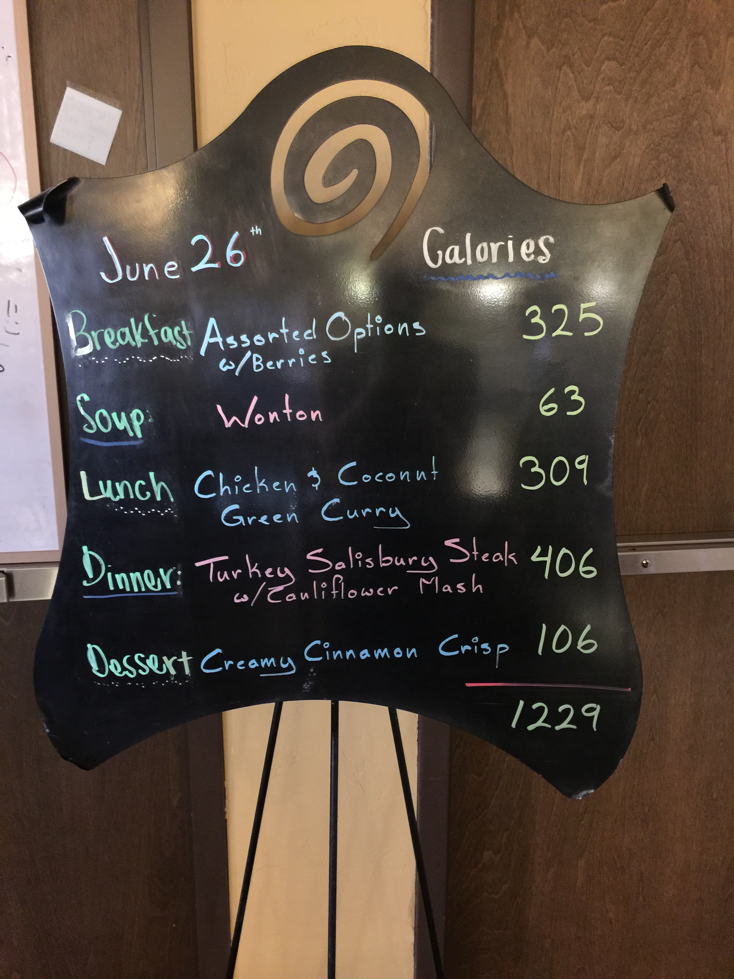 June 26th Calories
Breakfast Assorted Options 325
w/Berries
Soup: Wonton 63
Lunch Chicken & Coconut 309
Green Curry
Dinner: Turkey Salisbury Steak 406
w/Cauliflower Mash
Dessert Creamy Cinnamon Crisp 106
1229